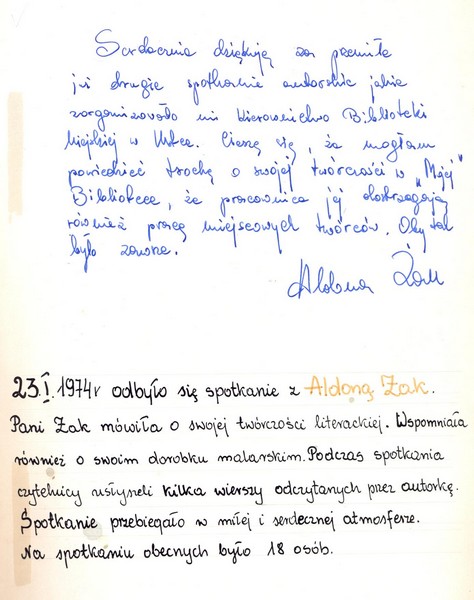 Serdecznie dziękuję za przemiłe
już drugie spotkanie autorskie jakie
zorganizowało mi Kierownictwo Biblioteki
Miejskiej w Ustce. Cieszę się, że mogłam
powiedzieć trochę o swojej twórczości w „Mojej
Bibliotece, że pracownice jej dostrzegają
również pracę miejscowych twórców. Oby tak
było zawsze.
Aldona Żak
23.I.1974r odbyło się spotkanie z Aldoną Żak.
Pani Żak mówiła o swojej twórczości literackiej. Wspomniała
również o swoim dorobku malarskim. Podczas spotkania
czytelnicy usłyszeli kilka wierszy odczytanych przez autorkę.
Spotkanie przebiegało w miłej i serdecznej atmosferze.
Na spotkaniu obecnych było 18 osób.